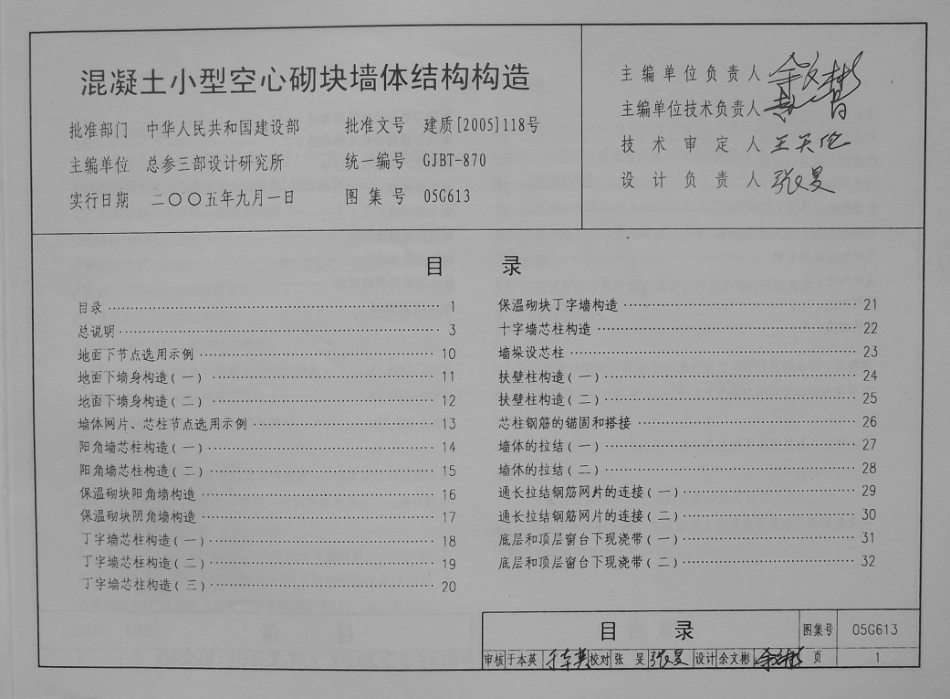 混凝土小型空心砌块墙体结构构造
批准部门 中华人民共和国建设部 批准文号 建质[2005]118号
主编单位 总参三部设计研究所 统一编号 GJBT-870
实行日期 二〇〇五年九月一日 图集号 05G613
主编单位负责人 余文彬
主编单位技术负责人
技术审定人
设计负责人
目 录
目录 1
总说明 3
地面下节点选用示例 10
地面下墙身构造(一) 11
地面下墙身构造(二) 12
墙体网片、芯柱节点选用示例 13
阳角墙芯柱构造(一) 14
阳角墙芯柱构造(二) 15
保温砌块阳角墙构造 16
保温砌块阴角墙构造 17
丁字墙芯柱构造(一) 18
丁字墙芯柱构造(二) 19
丁字墙芯柱构造(三) 20
保温砌块丁字墙构造 21
十字墙芯柱构造 22
墙垛设芯柱 23
扶壁柱构造(一) 24
扶壁柱构造(二) 25
芯柱钢筋的锚固和搭接 26
墙体的拉结(一) 27
墙体的拉结(二) 28
通长拉结钢筋网片的连接(一) 29
通长拉结钢筋网片的连接(二) 30
底层和顶层窗台下现浇带(一) 31
底层和顶层窗台下现浇带(二) 32
目 录 图集号 05G613
审核 于本英 于本英 校对 张 昊 张昊 设计 余文彬 余文彬 页 1